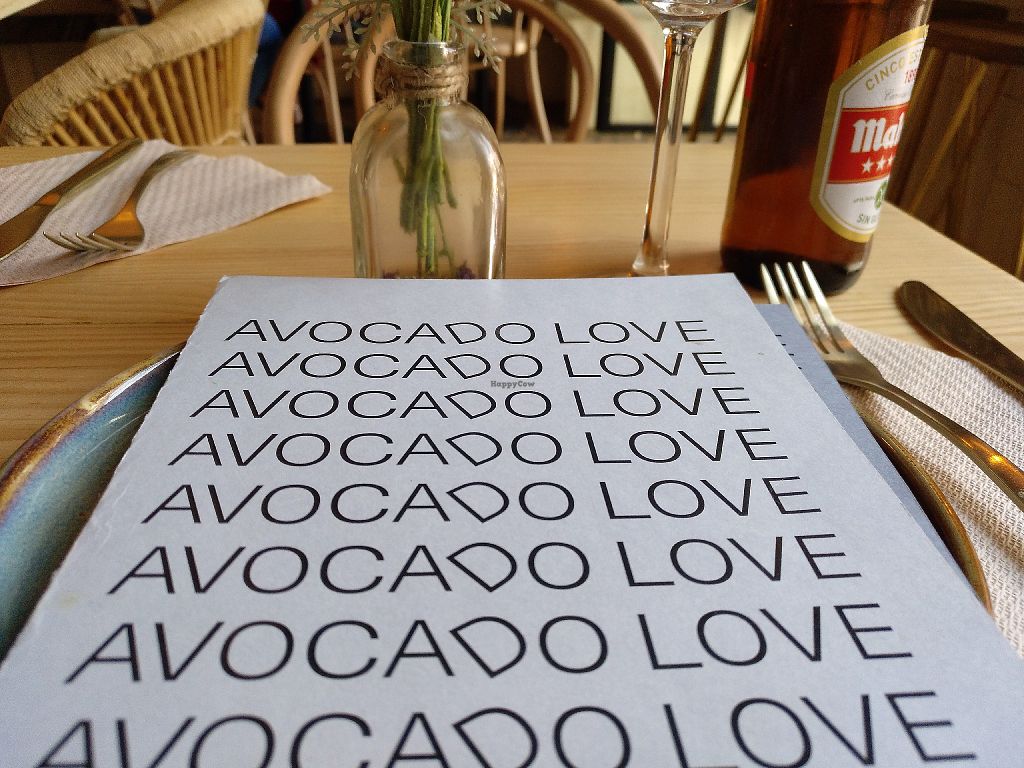 CINCO
Mah
SIN
AVOCADO LOVE
AVOCADO LOVE
HappyCow
AVOCADO LOVE
AVOCADO LOVE
AVOCADO LOVE
AVOCADO LOVE
AVOCADO LOVE
AVOCADO LOVE